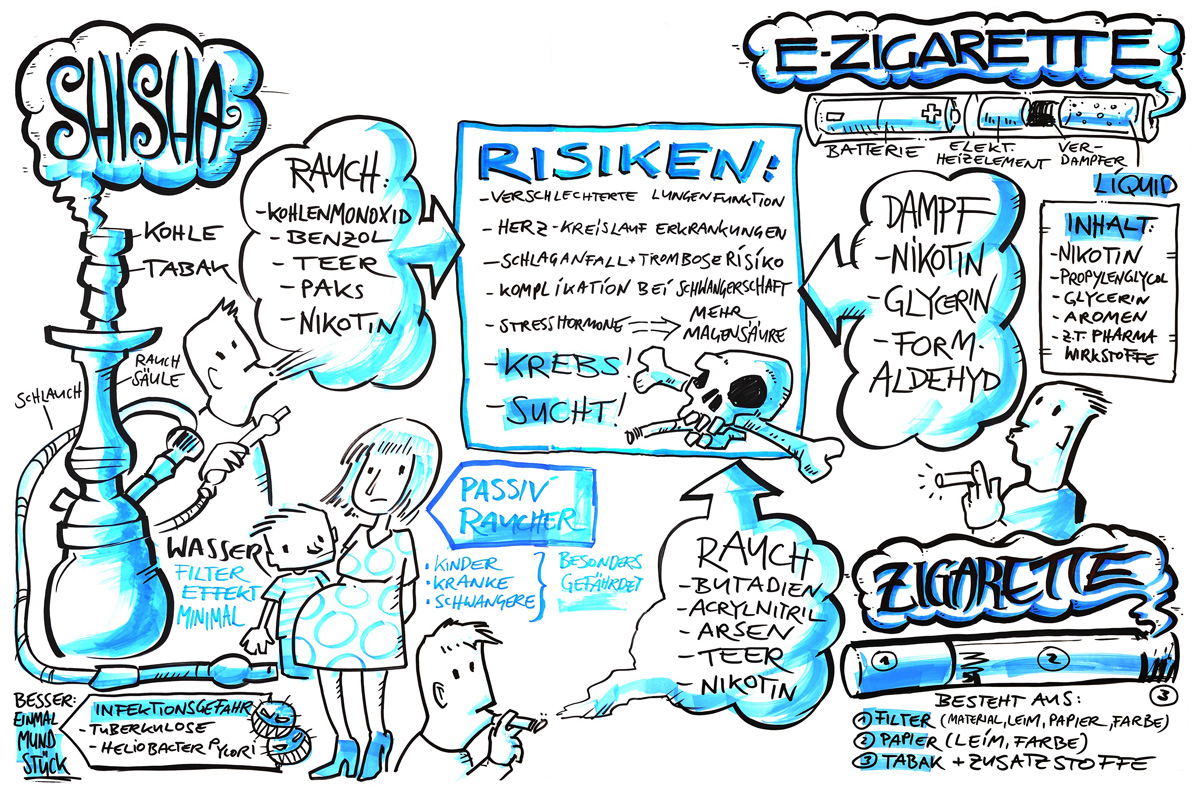 SHISHA
KOHLE
TABAK
RAUCH
SÄULE
SCHLAUCH
WASSER
FILTER
EFFEKT
MINIMAL
BESSER:
EINMAL
MUND
STÜCK
INFEKTIONSGEFAHR
-TUBERKULOSE
-HELIOBACTER PYLORI
RAUCH:
-KOHLENMONOXID
-BENZOL
-TEER
-PAKS
-NIKOTIN
RISIKEN:
-VERSCHLECHTERTE LUNGENFUNKTION
-HERZ-KREISLAUF ERKRANKUNGEN
-SCHLAGANFALL+TROMBOSE RISIKO
-KOMPLIKATION BEI SCHWANGERSCHAFT
-STRESSHORMONE ⇒ MEHR
MAGENSÄURE
-KREBS!
-SUCHT!
PASSIV
RAUCHER
•KINDER
•KRANKE
•SCHWANGERE
BESONDERS
GEFÄHRDET
E-ZIGARETTE
+
-
BATTERIE
ELEKT.
HEIZELEMENT
VER-
DAMPFER
LIQUID
INHALT:
-NIKOTIN
-PROPYLENGLYCOL
-GLYCERIN
-AROMEN
-Z.T. PHARMA
WIRKSTOFFE
DAMPF
-NIKOTIN
-GLYCERIN
-FORM-
ALDEHYD
RAUCH
-BUTADIEN
-ACRYLNITRIL
-ARSEN
-TEER
-NIKOTIN
ZIGARETTE
1
2
3
BESTEHT AUS:
1 FILTER (MATERIAL, LEIM, PAPIER, FARBE)
2 PAPIER (LEIM, FARBE)
3 TABAK + ZUSATZSTOFFE